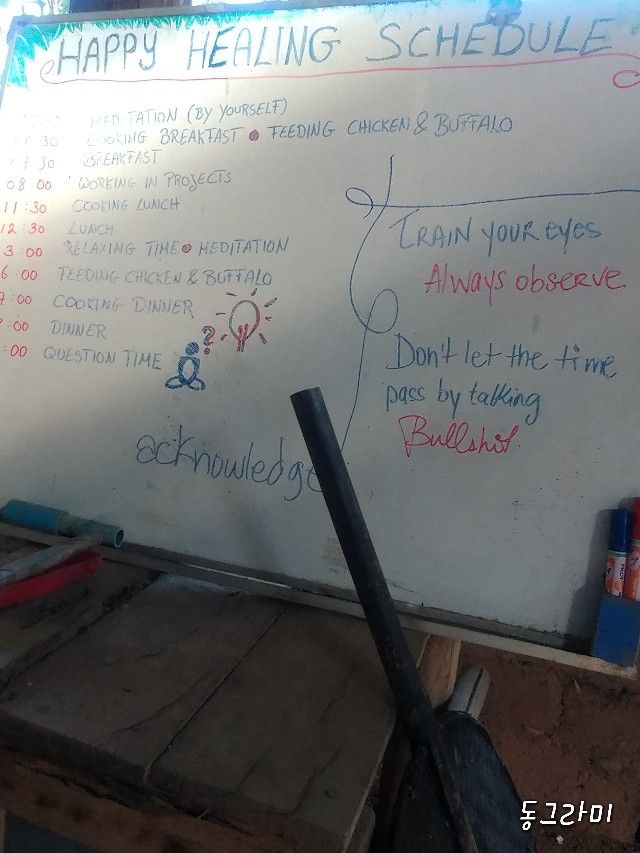 HAPPY HEALING SCHEDULE
MEDITATION (BY YOURSELF)
:30 COOKING BREAKFAST • FEEDING CHICKEN & BUFFALO
7:30 BREAKFAST
08:00 WORKING IN PROJECTS
11:30 COOKING LUNCH
12:30 LUNCH
3:00 RELAXING TIME • MEDITATION
6:00 FEEDING CHICKEN & BUFFALO
7:00 COOKING DINNER
:00 DINNER
:00 QUESTION TIME
?
TRAIN YOUR EYES
Always observe
Don't let the time
pass by talking
Bullshit.
acknowledge
동그라미